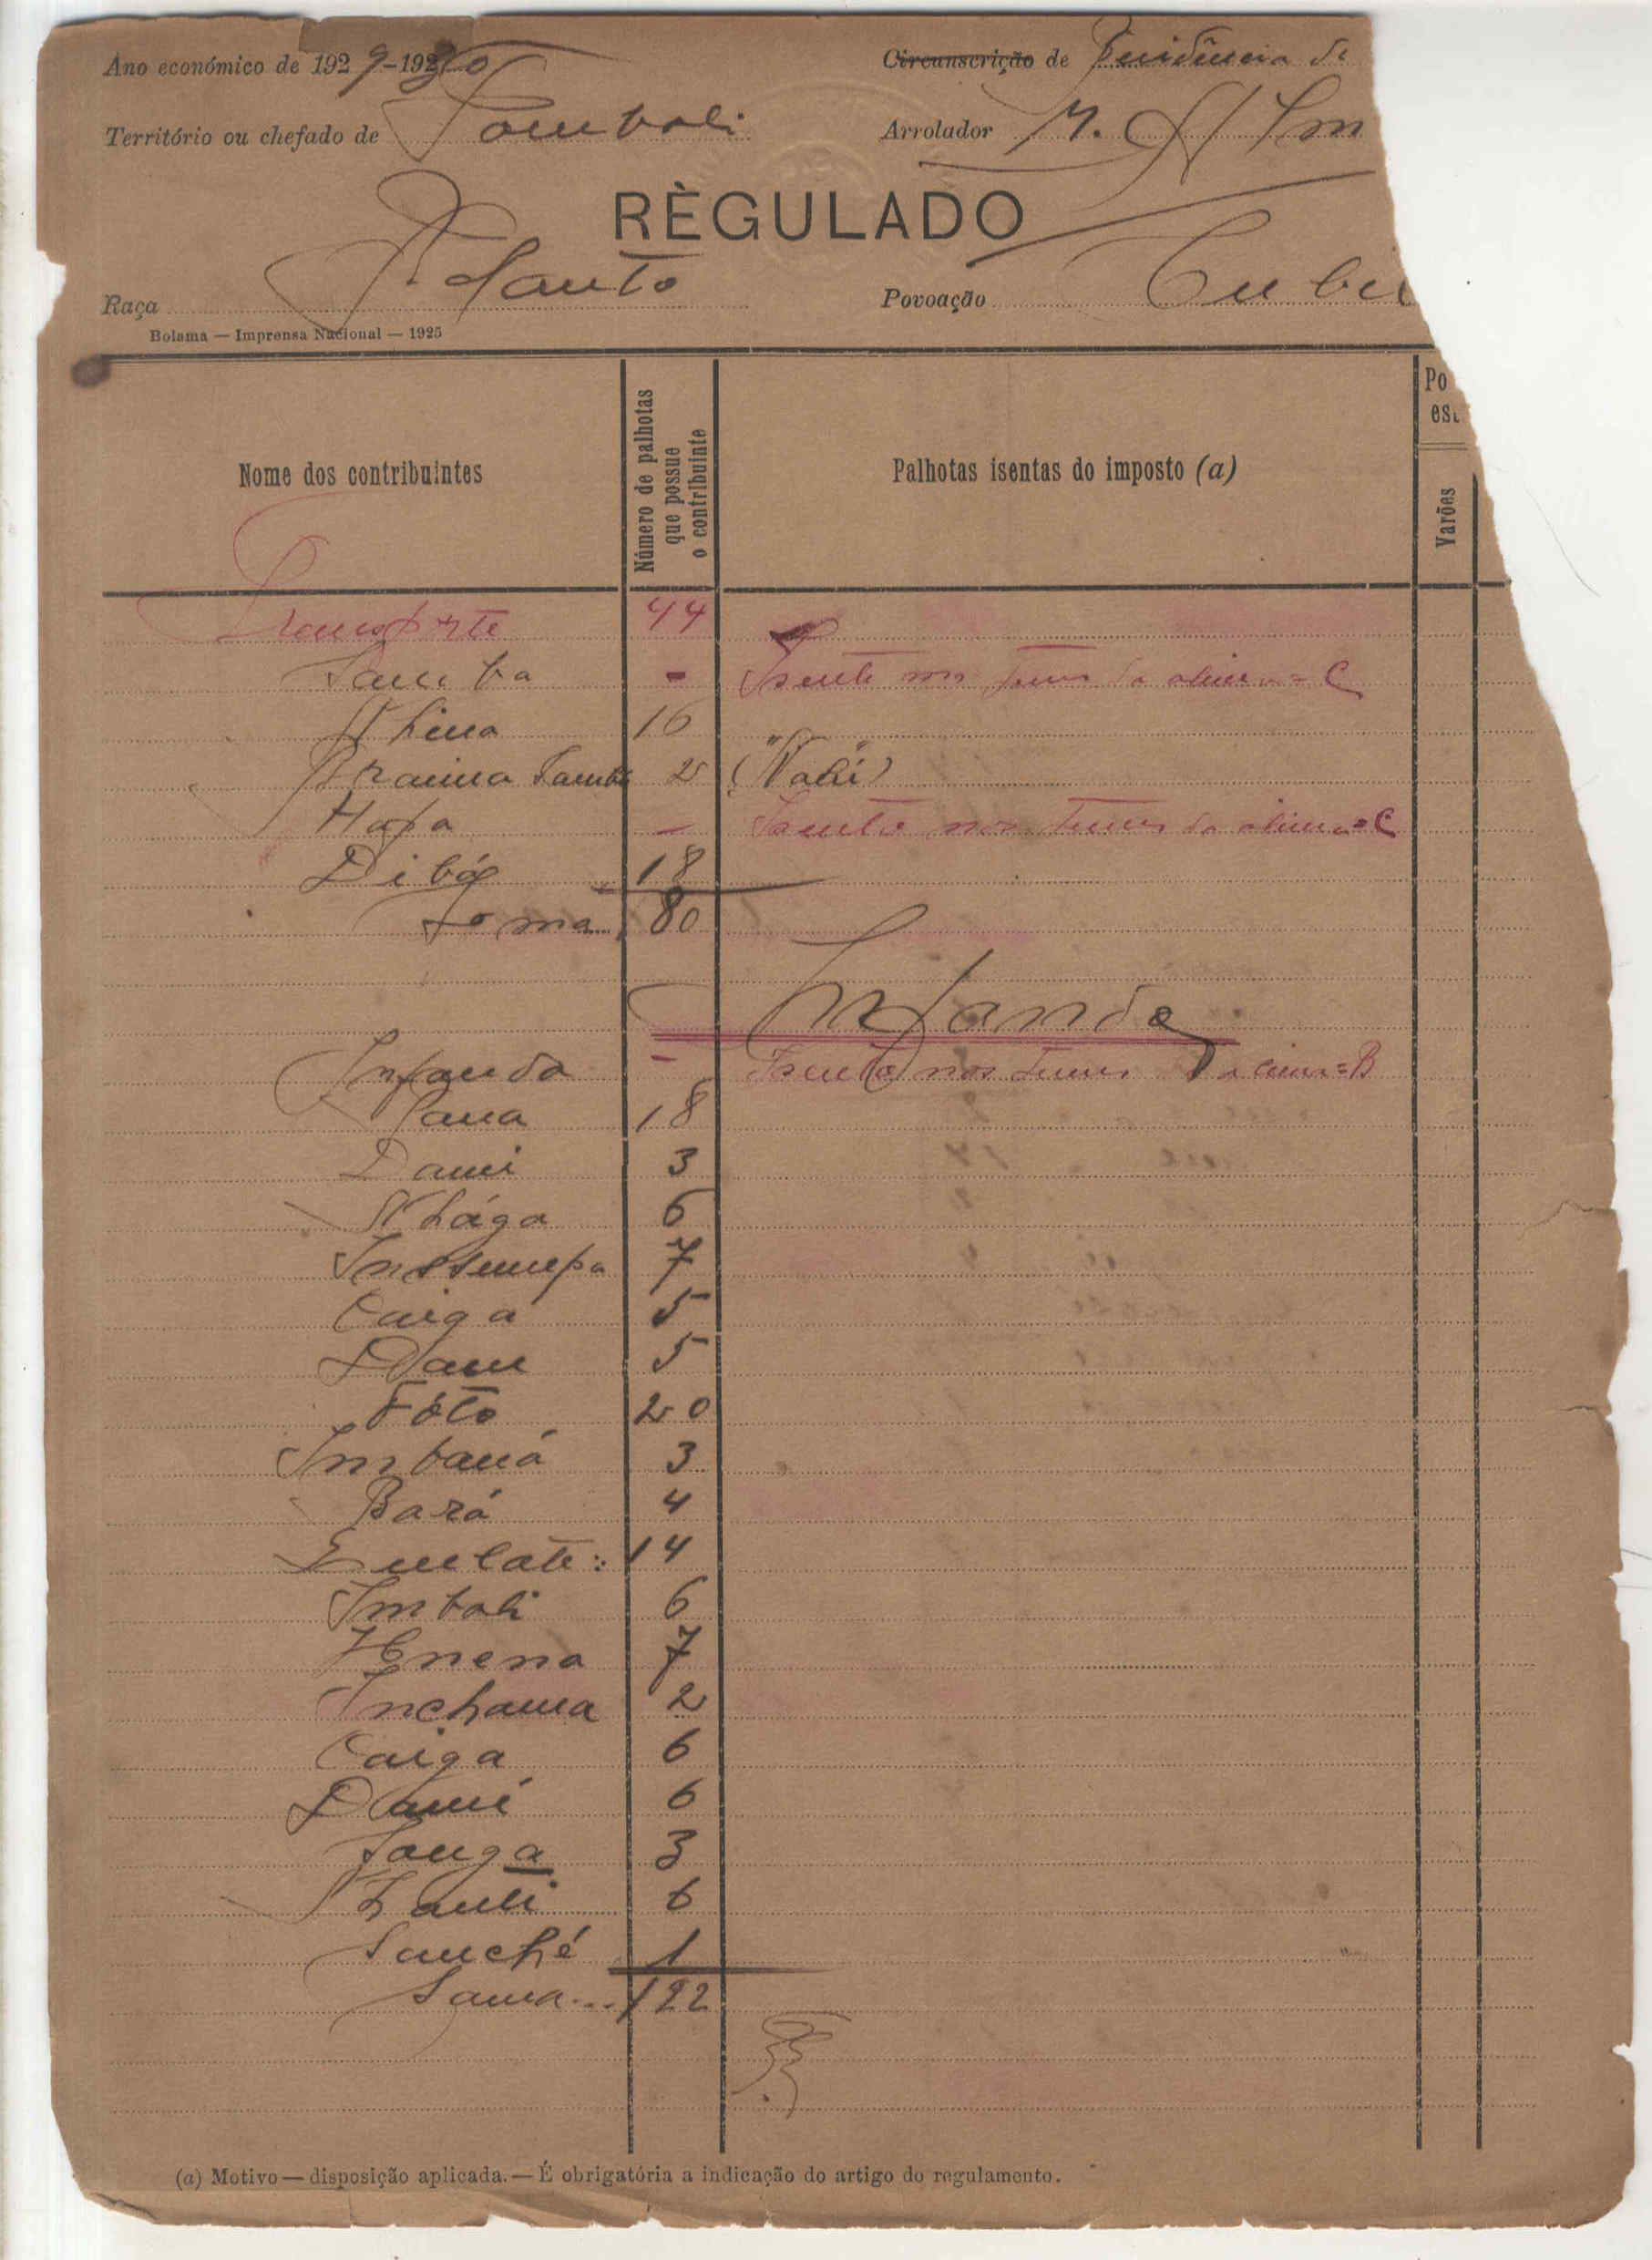 Ano económico de 1929-1930 Circunscrição de Residência de
Território ou chefado de Tombali Arrolador M.
RÈGULADO
Raça Balanta Povoação Cubu
Bolama — Imprensa Nacional — 1925
Nome dos contribuintes Número de palhotas que possue o contribuinte Palhotas isentas do imposto (a) Po
es
Varões
Transporte 44
Samba - Isento nos termos da alinea = C
N'hina 16
Braima Samba 2 (Nalú)
Hafa - Isento nos termos da alinea = C
Dibó 18
Soma... 80
Infanda
Infanda - Isento nos termos da alinea = B
Sana 18
Dami 3
N'hága 6
7
Caiga 5
Dam 5
Fóto 20
Imbaná 3
Bará 4
14
Imbali 6
7
Inchama 2
Caiga 6
Damé 6
Sanga 3
6
Sanché 1
Soma... 122
(a) Motivo — disposição aplicada. — É obrigatória a indicação do artigo do regulamento.